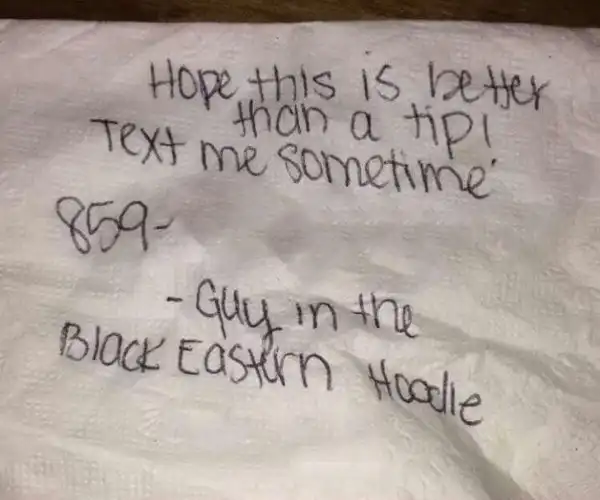 Hope this is better
than a tip!
Text me sometime
859-
- Guy in the
Black Eastern Hoodie